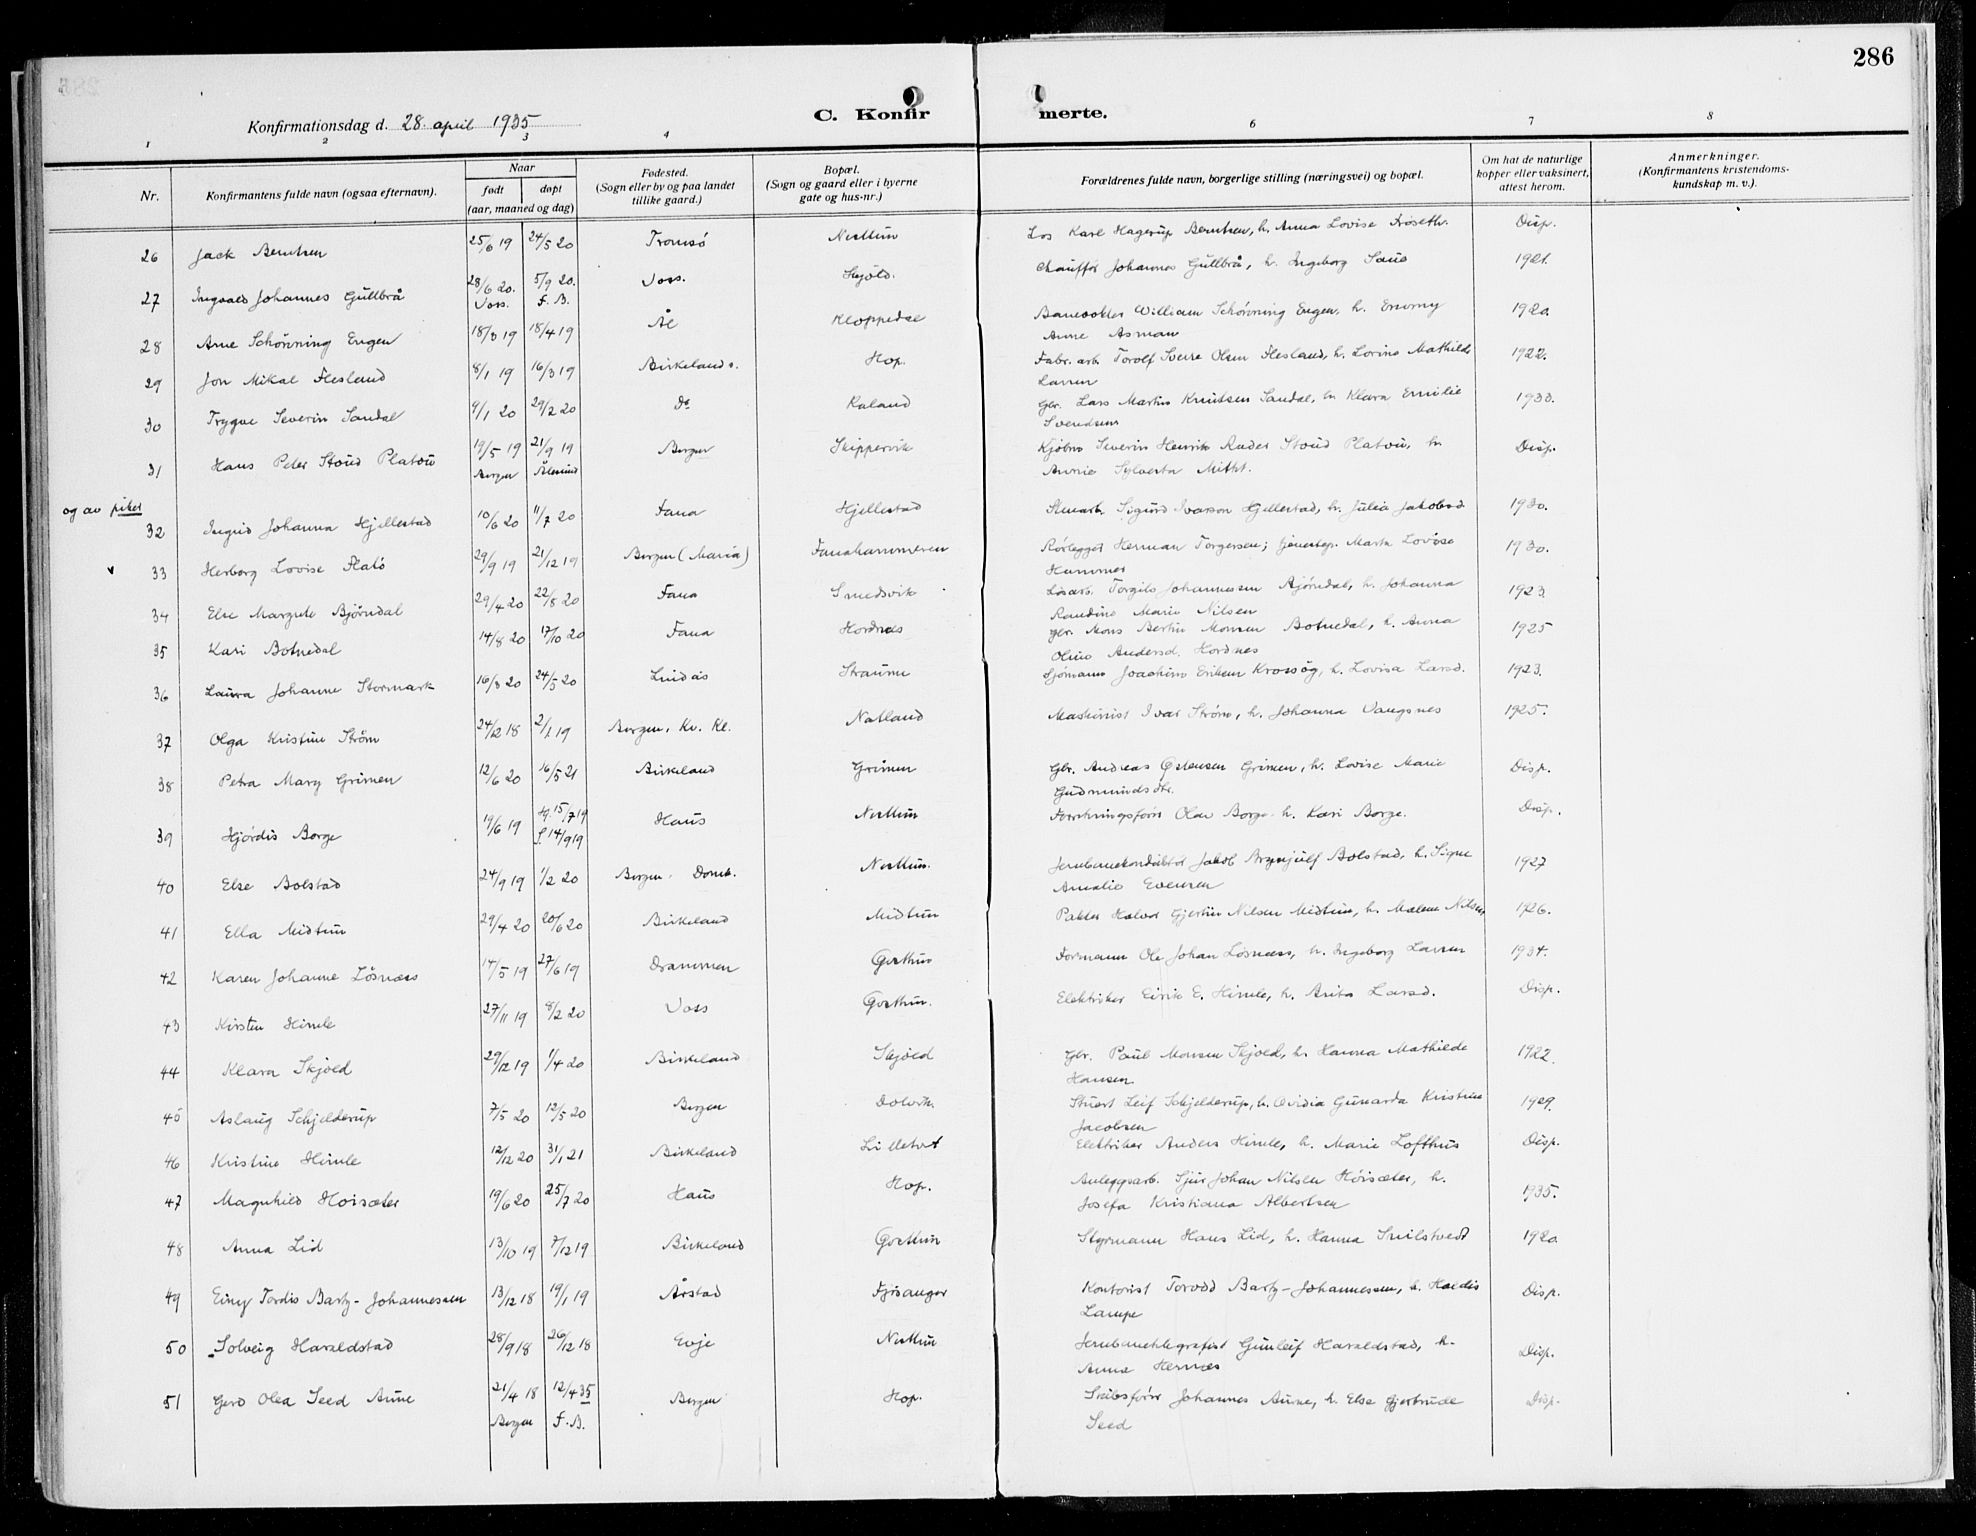 286
Konfirmationsdag d. 28. april 1935
C. Konfirmerte.
1 2 3 4 6 7 8
Nr. Konfirmantens fulde navn (ogsaa efternavn). Naar født døpt (aar, maaned og dag) Fødested. (Sogn eller by og paa landet tillike gaard.) Bopæl. (Sogn og gaard eller i byerne gate og hus-nr.) Forældrenes fulde navn, borgerlige stilling (næringsvei) og bopæl. Om hat de naturlige kopper eller vaksinert, attest herom. Anmerkninger. (Konfirmantens kristendomskundskap m. v.).
26 Jack Berntsen 25/6 19 24/5 20 Tromsø Nesttun Los Karl Hagerup Berntsen, h. Anna Lovise Røseth. Disp.
27 Ingvald Johannes Gullbrå 28/6 20. Voss. 5/9 20. F. B. Voss. Skjold. Chauffør Johannes Gullbrå, h. Ingeborg Saue 1921.
28 Arne Schönning Engen 18/3 19 18/4 19 Ål Kloppedal Banevokter William Schönning Engen, h. Emmy Anne Asman 1920.
29 Jon Mikal Flesland 8/1 19 16/3 19 Birkeland s. Hop. Fabr. arb. Torolf Sverre Olsen Flesland, h. Lovina Mathilde Larsen 1922.
30 Trygve Severin Sandal 9/1 20 29/2 20 Do Kaland Gbr. Lars Martin Knutsen Sandal, h. Klara Emilie Svendsen 1933.
31 Hans Peter Stoud Platou 19/5 19 Bergen 21/9 19 Ålesund Bergen Skippervik Kjøbm. Severin Henrik Andes Stoud Platou, h. Annie Sylvesta Disp.
og av piker
32 Ingrid Johanna Hjellestad 10/6 20 11/7 20 Fana Hjellestad Stenarb. Sigurd Ivarson Hjellestad, h. Julia Jakobsd. 1930.
33 Herborg Lovise Flatø 29/9 19 21/12 19 Bergen (Maria) Fanahammeren Rørlegger Herman Torgersen; tjenestep. Marta Lovise Hammer 1930.
34 Else Margrete Bjørndal 29/4 20 22/8 20 Fana Smedsvik Løsarb. Torgils Johannessen Bjørndal, h. Johanna Randine Marie Nilsen 1923.
35 Kari Botnedal 14/8 20 17/10 20 Fana Hordnes gbr. Mons Bertin Monsen Botnedal, h. Anna Oline Andersd. Hordnes 1925
36 Laura Johanne Stormark 16/3 20 24/5 20 Lindås Straume Sjømann Joachim Eriksen Krossøg, h. Lovisa Larsd. 1923.
37 Olga Kristine Strøm 24/12 18 2/1 19 Bergen, Kv. Kl. Natland Maskinist Ivar Strøm, h. Johanna Vangsnes 1925.
38 Petra Mary Grimen 12/6 20 16/5 21 Birkeland Grimen Gbr. Andreas Østensen Grimen, h. Lovise Marie Gudmundsdtr. Disp.
39 Hjördis Borge 19/6 19 Hj. 15/7 19 f. 14/9 19 Haus Nesttun Forretningsfører Olav Borge h. Kari Borge. Disp.
40 Else Bolstad 24/9 19 1/2 20 Bergen, Domk. Nesttun. Jernbanekonduktør Jakob Brynjulf Bolstad, h. Signe Amalie Evensen 1927
41 Ella Midtun 29/4 20 20/6 20 Birkeland Midtun Pakker Halvor Gjertin Nilsen Midtun, h. Malene Nilsen 1926.
42 Karen Johanne Løsnæss 14/5 19 27/6 19 Drammen Gvsthus Formann Ole Johan Løsnæss, h. Ingeborg Larsen 1934.
43 Kirsten Himle 27/11 19 8/2 20 Voss Gvsthun. Elektriker Eirik E. Himle, h. Brita Larsd. Disp.
44 Klara Skjold 29/12 19 1/4 20 Birkeland Skjold Gbr. Paul Monsen Skjold, h. Hanna Mathilde Hansen 1922.
45 Aslaug Schjelderup 7/5 20 12/5 20 Bergen Dolvik. Stuert Leif Schjelderup, h. Ovidia Gunarda Kristine Jacobsen 1929.
46 Kristine Himle 12/12 20 31/1 21 Birkeland Lilletvet Elektriker Anders Himle, h. Marie Lofthus Disp.
47 Magnhild Hoisæter 19/6 20 25/7 20 Haus Hop. Anleggsarb. Sjur Johan Nilsen Höisæter, h. Josefa Kristiana Albertsen 1935.
48 Anna Lid 13/10 19 7/12 19 Birkeland Gvsttun Styrmann Hans Lid, h. Hanna Smilstvedt 1920.
49 Einy Tordis Bartz-Johannessen 13/12 18 19/1 19 Årstad Fjøsanger Kontorist Torodd Bartz-Johannessen, h. Haldis Lampe Disp.
50 Solveig Haraldstad 28/9 18 26/12 18 Evje Nesttun Jernbanetelegrafist Gunleif Haraldstad, h. Anna Hernes Disp.
51 Gerd Olea Seed Aune 21/4 18 Bergen 12/4 35 F. B. Bergen Hop. Skibsfører Johannes Aune, h. Else Gjertrude Seed Disp.